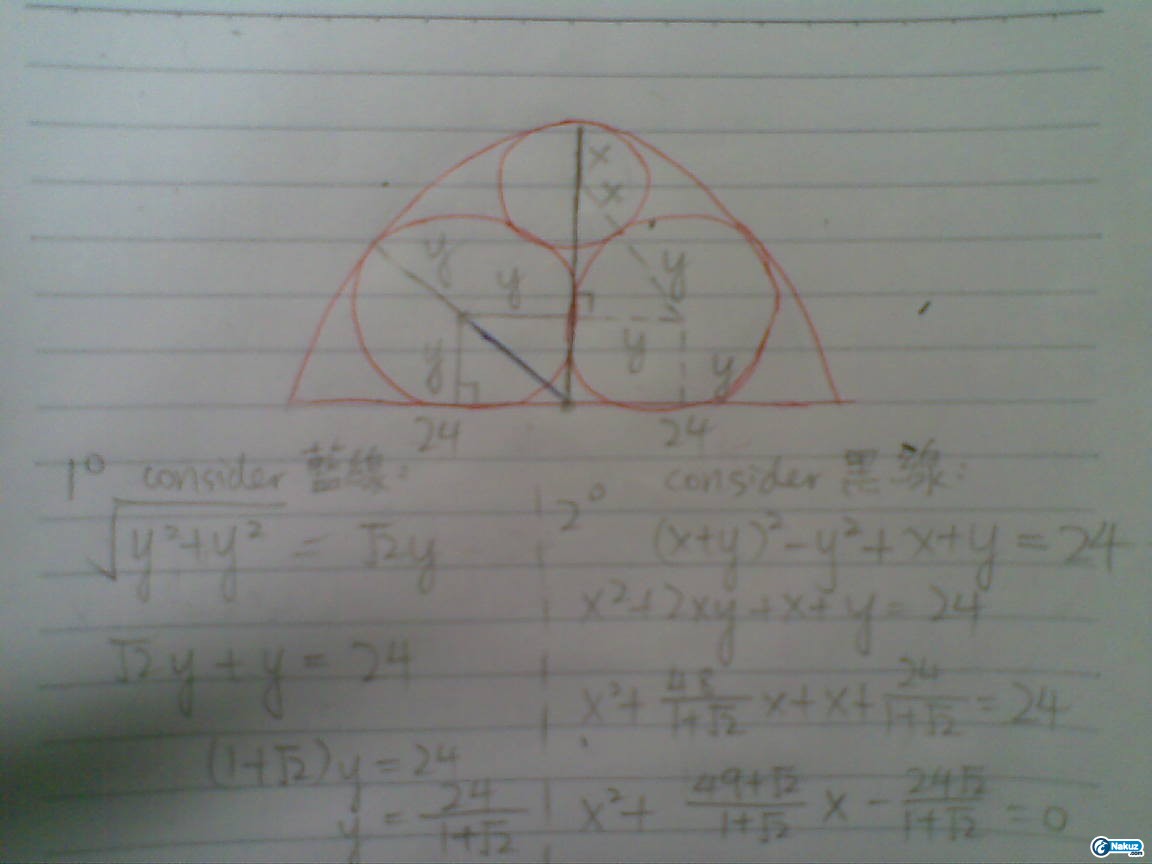 x
x
y
y
y
y
y
y
24
24
1° consider 藍線:
√y²+y² = √2y
√2y + y = 24
(1+√2)y = 24
y = 24/1+√2
2° consider 黑線:
(x+y)²-y²+x+y=24
x²+2xy+x+y=24
x²+48/1+√2 x+x+24/1+√2=24
x²+49+√2/1+√2 x-24√2/1+√2=0
Nakuz.com